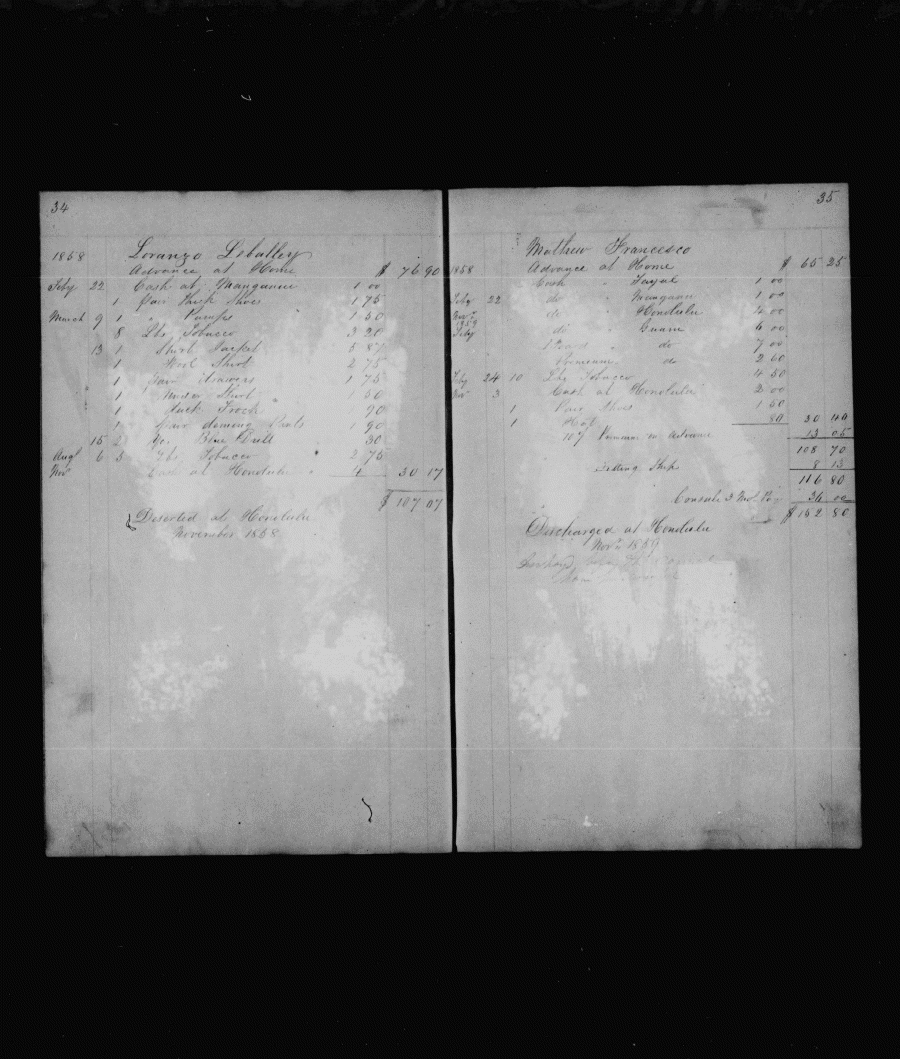 34
1858 Loranzo Liballey
Advance at Home $ 76 90
Feby 22 Cash at Manganui 1 00
1 pair Thick Shoes 1 75
March 9 1 " Pumps 1 50
8 Lbs Tobacco 3 20
13 1 Jacket 5 87
1 Wool Shirt 2 75
1 pair drawers 1 75
1 Under Shirt 1 50
1 Duck Frock 90
1 pair deming Pants 1 90
15 2 Blue Drill 30
Augt 6 5 Lbs Tobacco 2 75
Nov Cash at Honolulu 4 30 17
$ 107 07
Deserted at Honolulu
November 1858
35
Mathew Francesco
1858 Advance at Home $ 65 25
Cash " Fayal 1 00
Feby 22 do " Manganui 1 00
Nov do " Honolulu 4 00
1859
Feby do " Guam 6 00
" do 7 00
do 2 60
Feby 24 10 Lbs Tobacco 4 50
Nov 3 Cash at Honolulu 2 00
1 Pair Shoes 1 50
1 Hat 80 30 40
Advance 13 05
108 70
Fitting Ship 8 13
116 80
Consuls 3 Mos 36 00
$ 152 80
Discharged at Honolulu
Nov 1859